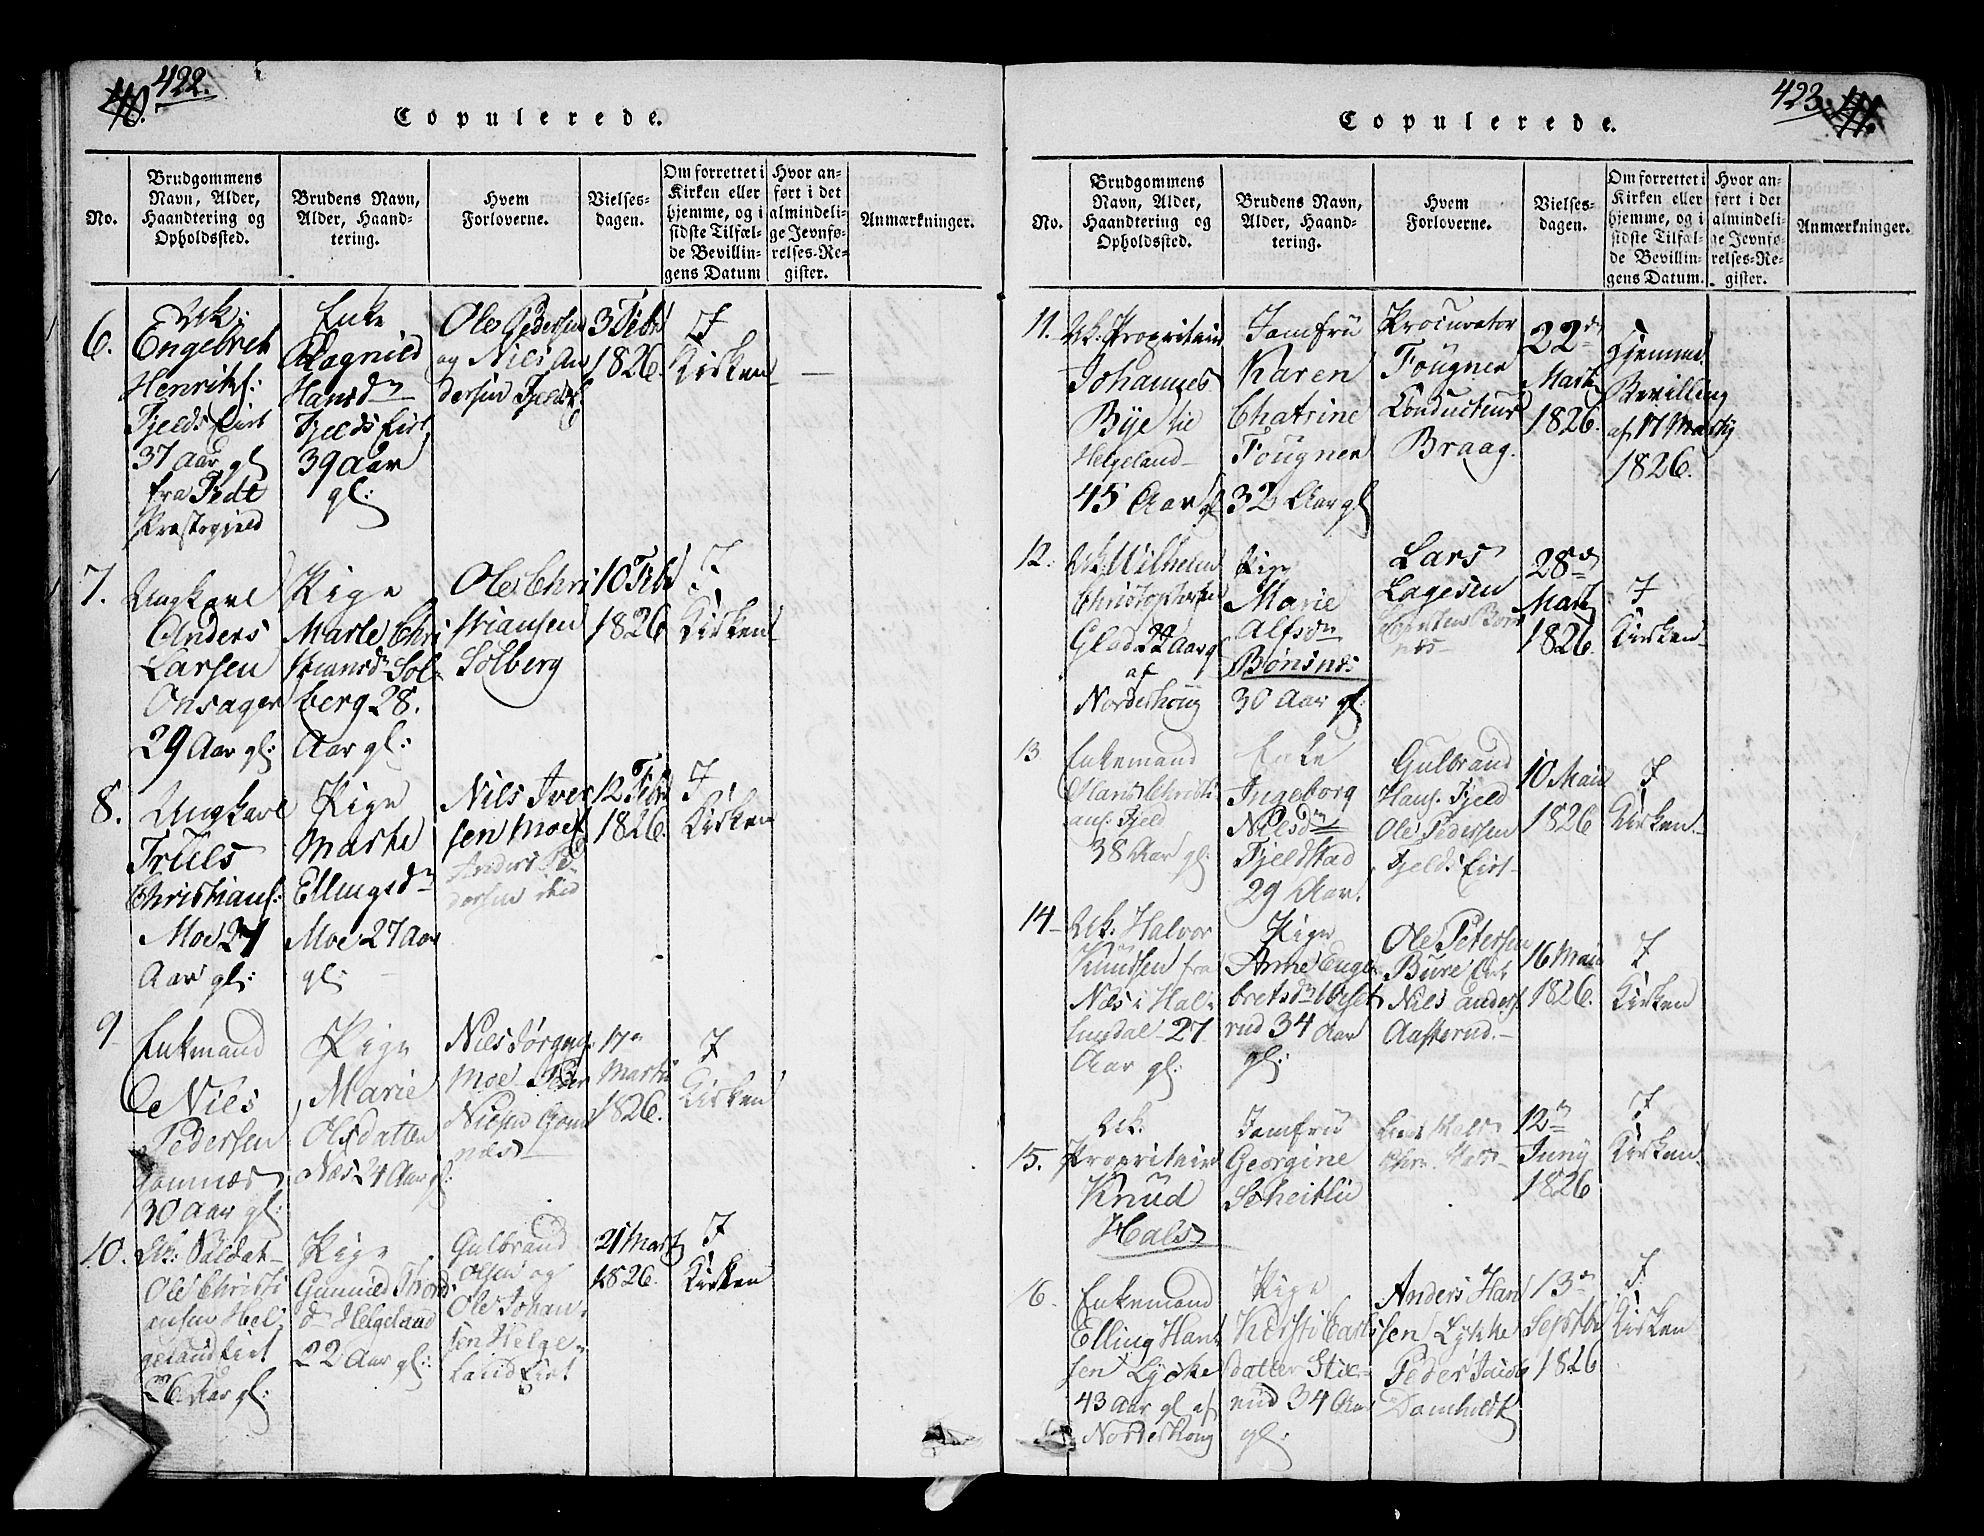 422.
Copulerede.
No.
Brudgommens
Navn, Alder,
Haandtering og
Opholdssted.
Brudens Navn,
Alder, Haand-
tering.
Hvem
Forloverne.
Vielses-
dagen.
Om forrettet i
Kirken eller
hjemme, og i
sidste Tilfæl-
de Bevillin-
gens Datum
Hvor an-
ført i det
almindeli-
ge Jevnfø-
relses-Re-
gister.
Anmærkninger.
6.
Uk:
Engebret
Henriks:
Fjelds Eiet
37 aar gl
fra
Præstegjeld
Enke
Ragnild
Hansdr
Fjelds Eiet
39 Aar
gl:
Ole Pedersen
og Nils An
dersen
3 Febr
1826.
I
Kirken
7.
Ungkarl
Anders
Larsen
Onsager
29 Aar gl:
Pige
Marte Chri
stiansdr Sol
berg 28.
Aar gl:
Ole Chri
stiansen
Solberg
10 Febr
1826
I
Kirken
8.
Ungkarl
Truls
Christians:
Moe 27
Aar gl:
Pige
Marthe
Ellingsdr
Moe 27 Aar
gl:
Nils Iver
sen Moe
Anders Pe
dersen ibid
12 Febr
1826.
I
Kirken
9
Enkemand
Niels
Pedersen
Gomnæs
30 Aar gl:
Pige
Marie
Olsdatter
Næs 24 Aar gl:
Niels Jørgens
Moe Peder
Nielsen Gom
næs
17de
Martii
1826.
I
Kirken
10.
Uk: Soldat
Ole Christi
ansen Hel
geland Eiet
26 Aar gl:
Pige
Gunnild Thord
dr Helgeland
22 Aar gl:
Gulbrand
Olsen og
Ole Johan
sen Helge
land Eiet
21 Marti
1826.
I
Kirken
423.
Copulerede.
No.
Brudgommens
Navn, Alder,
Haandtering og
Opholdssted.
Brudens Navn,
Alder, Haand-
tering.
Hvem
Forloverne.
Vielses-
dagen.
Om forrettet i
Kirken eller
hjemme, og i
sidste Tilfæl-
de Bevillin-
gens Datum.
Hvor an-
ført i det
almindeli-
ge Jevnfø-
relses-Re-
gister.
Anmærkninger.
11.
Uk: Proprietair
Johannes
Bye
Helgeland
45 Aar gl
Jomfrü
Karen
Chatrine
Foügner
32 Aar gl
Procurator
Foügner
Conducteur
Braag.
22de
Marti
1826.
Hjemme
Bevilling
af 17 Martij
1826.
12.
Uk: Wilhelm
Christophersen
Glad 22 Aar g
af
Norderhoüg
Pige
Marie
Alfsdr
Bønsnæs
30 Aar gl:
Lars
Lagesen
28de
Marti
1826.
I
Kirken
13
Enkemand
Hans Christi
ans: Fjeld
38 Aar gl:
Enke
Ingeborg
Nilsdr
Fjeldstad
29 Aar.
Gulbrand
Hans: Fjeld
Ole Pedersen
Fjelds Eiet
10 Mai
1826
I
Kirken
14
Uk. Halvor
Knüdsen fra
Næs i Hal
lingdal 27
Aar gl:
Pige
Anne Enge
bretsdr
rud 34 Aar
gl:
Ole Petersen
Bure Eiet
Nils Anders:
Aasterud.
16 Mai
1826.
I
Kirken
15.
Uk.
Proprietair
Knud
Hals
Jomfrü
Georgine
Scheitlie
12te
Juny
1826
I
Kirken
6.
Enkemand
Elling Han
sen Lycke
43 Aar gl af
Norderhoug
Pige
Kersti Carls
datter
rud 34 Aar
gl:
Anders Han
sen Lykke
Peder
Damhield
13de
Septbr
1826
I
Kirken